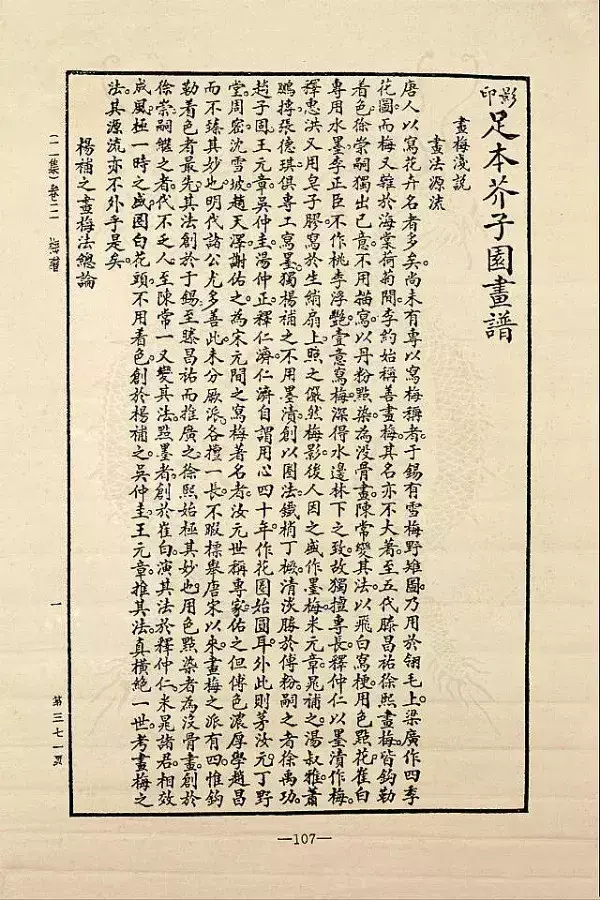 影印足本芥子園畫譜
畫梅淺說
畫法源流
唐人以寫花卉名者多矣。尚未有專以寫梅稱者。于錫有雪梅野雉圖。乃用於翎毛上。梁廣作四季
花圖。而梅又雜於海棠荷菊間。李約始稱善畫梅。其名亦不大著。至五代滕昌祐徐熙畫梅。皆鈎勒
着色。徐崇嗣獨出己意。不用描寫。以丹粉點染。為没骨畫。陳常變其法。以飛白寫梗。用色點花。崔白
專用水墨。李正臣不作桃李浮艷。壹意寫梅。深得水邊林下之致。故獨擅專長。釋仲仁以墨漬作梅。
釋惠洪又用皂子膠寫於生綃扇上。照之儼然梅影。後人因之盛作墨梅。米元章晁補之湯叔雅蕭
鵬搏張德琪俱專工寫墨。獨楊補之不用墨漬。創以圈法。鐵梢丁橛。清淡勝於傅粉。嗣之者徐禹功。
趙子固。王元章。吳仲圭。湯仲正。釋仁濟。仁濟自謂用心四十年。作花圈始圓耳。外此則茅汝元。丁野
堂。周密。沈雪坡。趙天澤。謝佑之。為宋元間之寫梅著名者。汝元世稱專家。佑之但傅色濃厚。學趙昌
而不臻其妙也。明代諸公尤多善此。未分厥派。各擅一長。不暇標舉。唐宋以來畫梅之派有四。惟鈎
勒着色者最先。其法創於于錫。至滕昌祐而推廣之。徐熙始極其妙也。用色點染者為没骨畫。創於
徐崇嗣。繼之者代不乏人。至陳常一又變其法。點墨者創於崔白。演其法於釋仲仁。米晁諸君相效
成風。極一時之盛。圈白花頭不用着色。創於楊補之。吳仲圭王元章推其法。真橫絶一世。考畫梅之
法。其源流亦不外乎是矣。
楊補之畫梅法總論
(二集) 卷二 梅譜
一
第三七一頁
—107—